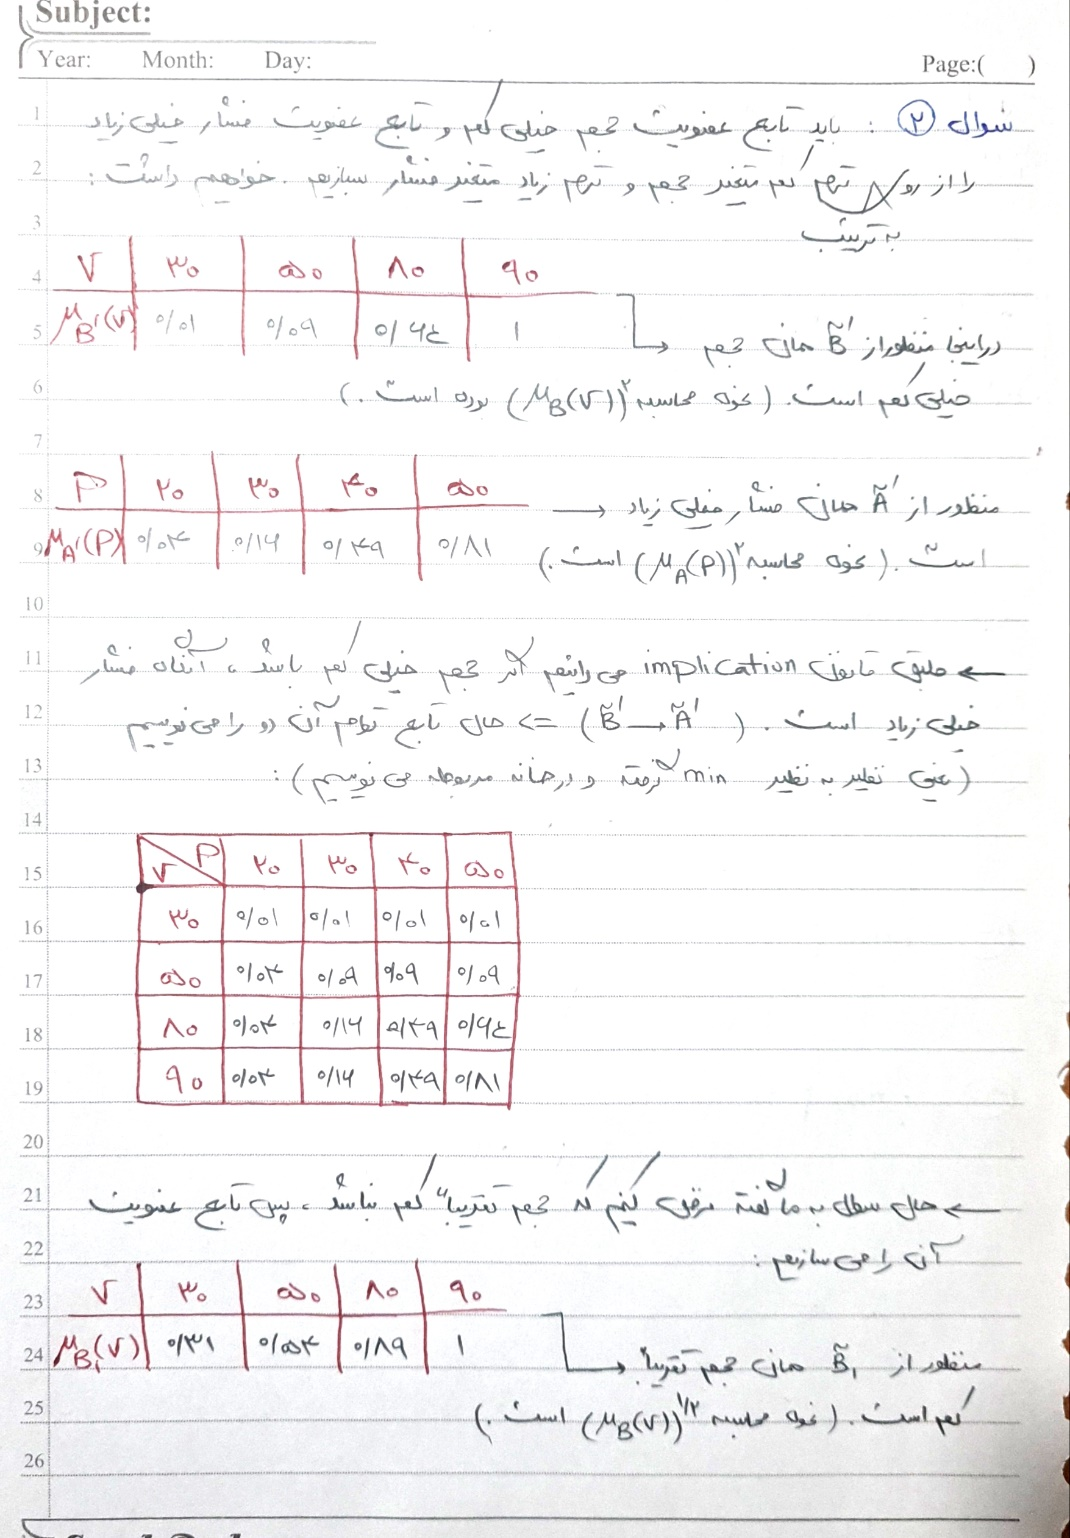 Subject:
Year: Month: Day: Page:( )
سوال ۲ : باید تابع عضویت حجم خیلی کم و تابع عضویت فشار خیلی زیاد
را از روی ترم کم متغیر حجم و ترم زیاد متغیر فشار بسازیم . خواهیم داشت :
به ترتیب
V ۳۰ ۵۰ ۸۰ ۹۰
μB'(V) ۰/۰۱ ۰/۰۹ ۰/۶۴ ۱
در اینجا منظور از B̃' همان حجم
خیلی کم است. (نحوه محاسبه (μB(V))² بوده است .)
P ۲۰ ۳۰ ۴۰ ۵۰
μA'(P) ۰/۰۴ ۰/۱۶ ۰/۴۹ ۰/۸۱
منظور از Ã' همان فشار خیلی زیاد
است . (نحوه محاسبه (μA(P))² است .)
← طبق قانون implication می دانیم اگر حجم خیلی کم باشد ، آنگاه فشار
خیلی زیاد است . (B̃' → Ã') => حال تابع توام آن دو را می نویسیم
(یعنی نظیر به نظیر min گرفته و در خانه مربوطه می نویسیم) :
V P ۲۰ ۳۰ ۴۰ ۵۰
۳۰ ۰/۰۱ ۰/۰۱ ۰/۰۱ ۰/۰۱
۵۰ ۰/۰۴ ۰/۰۹ ۰/۰۹ ۰/۰۹
۸۰ ۰/۰۴ ۰/۱۶ ۰/۴۹ ۰/۶۴
۹۰ ۰/۰۴ ۰/۱۶ ۰/۴۹ ۰/۸۱
← حال سوال به ما گفته فرض کنیم که حجم تقریباً کم باشد ، پس تابع عضویت
آن را می سازیم :
V ۳۰ ۵۰ ۸۰ ۹۰
μB₁(V) ۰/۳۱ ۰/۵۴ ۰/۸۹ ۱
منظور از B̃₁ همان حجم تقریباً
کم است . (نحوه محاسبه (μB(V))^۱/۲ است .)
1
2
3
4
5
6
7
8
9
10
11
12
13
14
15
16
17
18
19
20
21
22
23
24
25
26